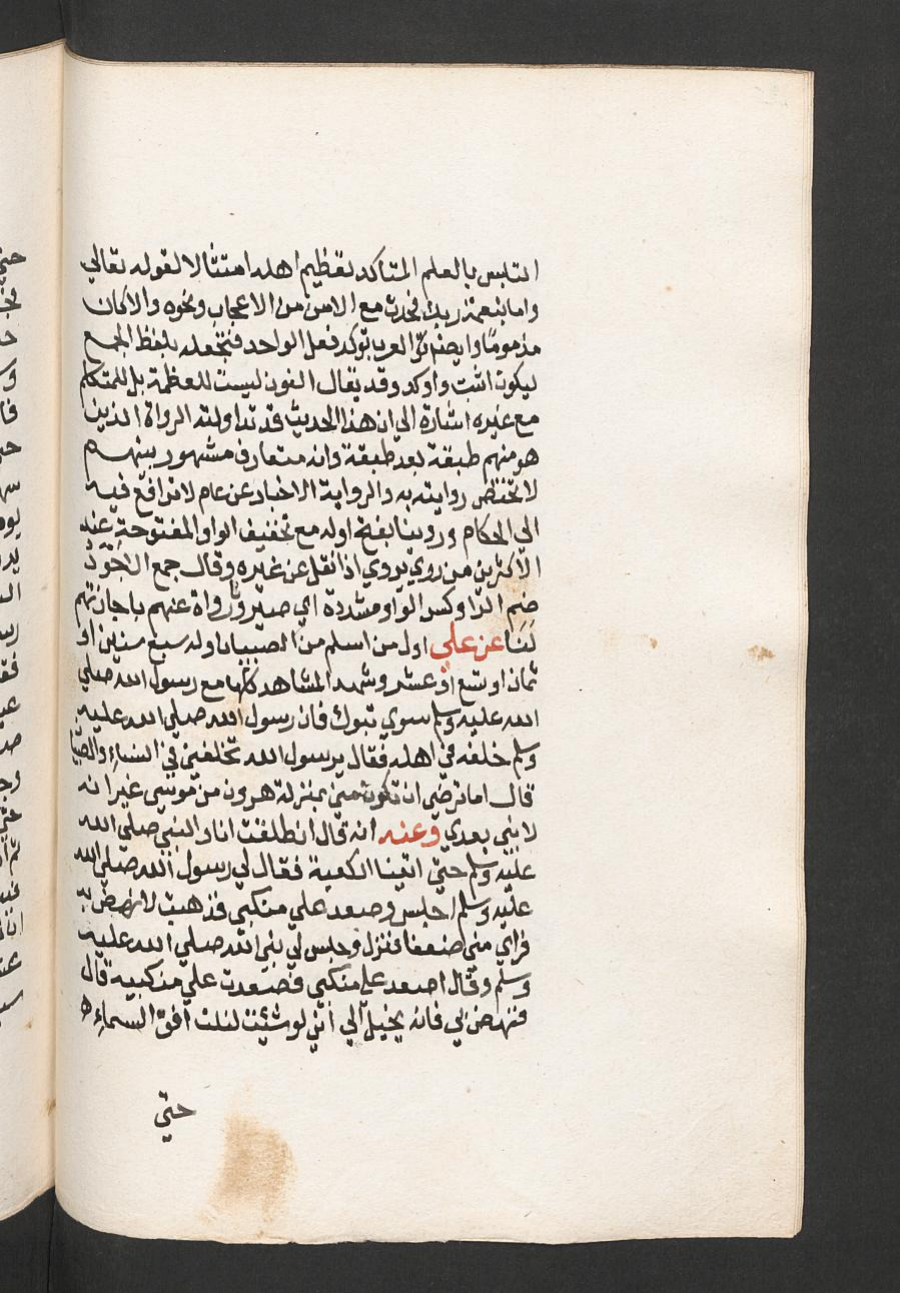 التلبس بالعلم المتاكد تعظيم اهله امتثالا لقوله تعالي
واما بنعمة ربك فحدث مع الامن من الاعجاب ونحوه والا كان
مذموما وايضا العرب توكد فعل الواحد فتجعله بلفظ الجمع
ليكون اثبت واوكد وقد يقال النون ليست للعظمة بل للمتكلم
مع غيره اشارة الي ان هذا الحديث قد تداولته الرواة الذين
هو منهم طبقة بعد طبقة وانه متعارف مشهور بينهم
لا تختص روايته به والرواية الاخبار عن عام لا ترافع فيه
الي الحكام وروينا بفتح اوله مع تخفيف الواو المفتوحة عند
الاكثرين من روي يروي اذا نقل عن غيره وقال جمع الاجود
ضم الرا وكسر الواو مشددة اي صيرونا رواة عنهم باجازتهم
لنا عن علي اول من اسلم من الصبيان وله سبع سنين او
ثمان او تسع او عشر وشهد المشاهد كلها مع رسول الله صلي
الله عليه وسلم سوي تبوك فان رسول الله صلي الله عليه
وسلم خلفه في اهله فقال يرسول الله تخلفني في النساء والصبيا
قال اما ترضي ان تكون مني بمنزلة هرون من موسي غير انه
لا نبي بعدي وعنه انه قال انطلقت انا والنبي صلي الله
عليه وسلم حتي اتينا الكعبة فقال لي رسول الله صلي الله
عليه وسلم اجلس وصعد علي منكبي فذهبت لانهض به
فراي مني ضعفا فنزل وجلس لي نبي الله صلي الله عليه
وسلم وقال اصعد علي منكبي فصعدت علي منكبيه قال
فنهض بي فانه يخيل الي اني لو شئت لنلت افق السماء
حتي